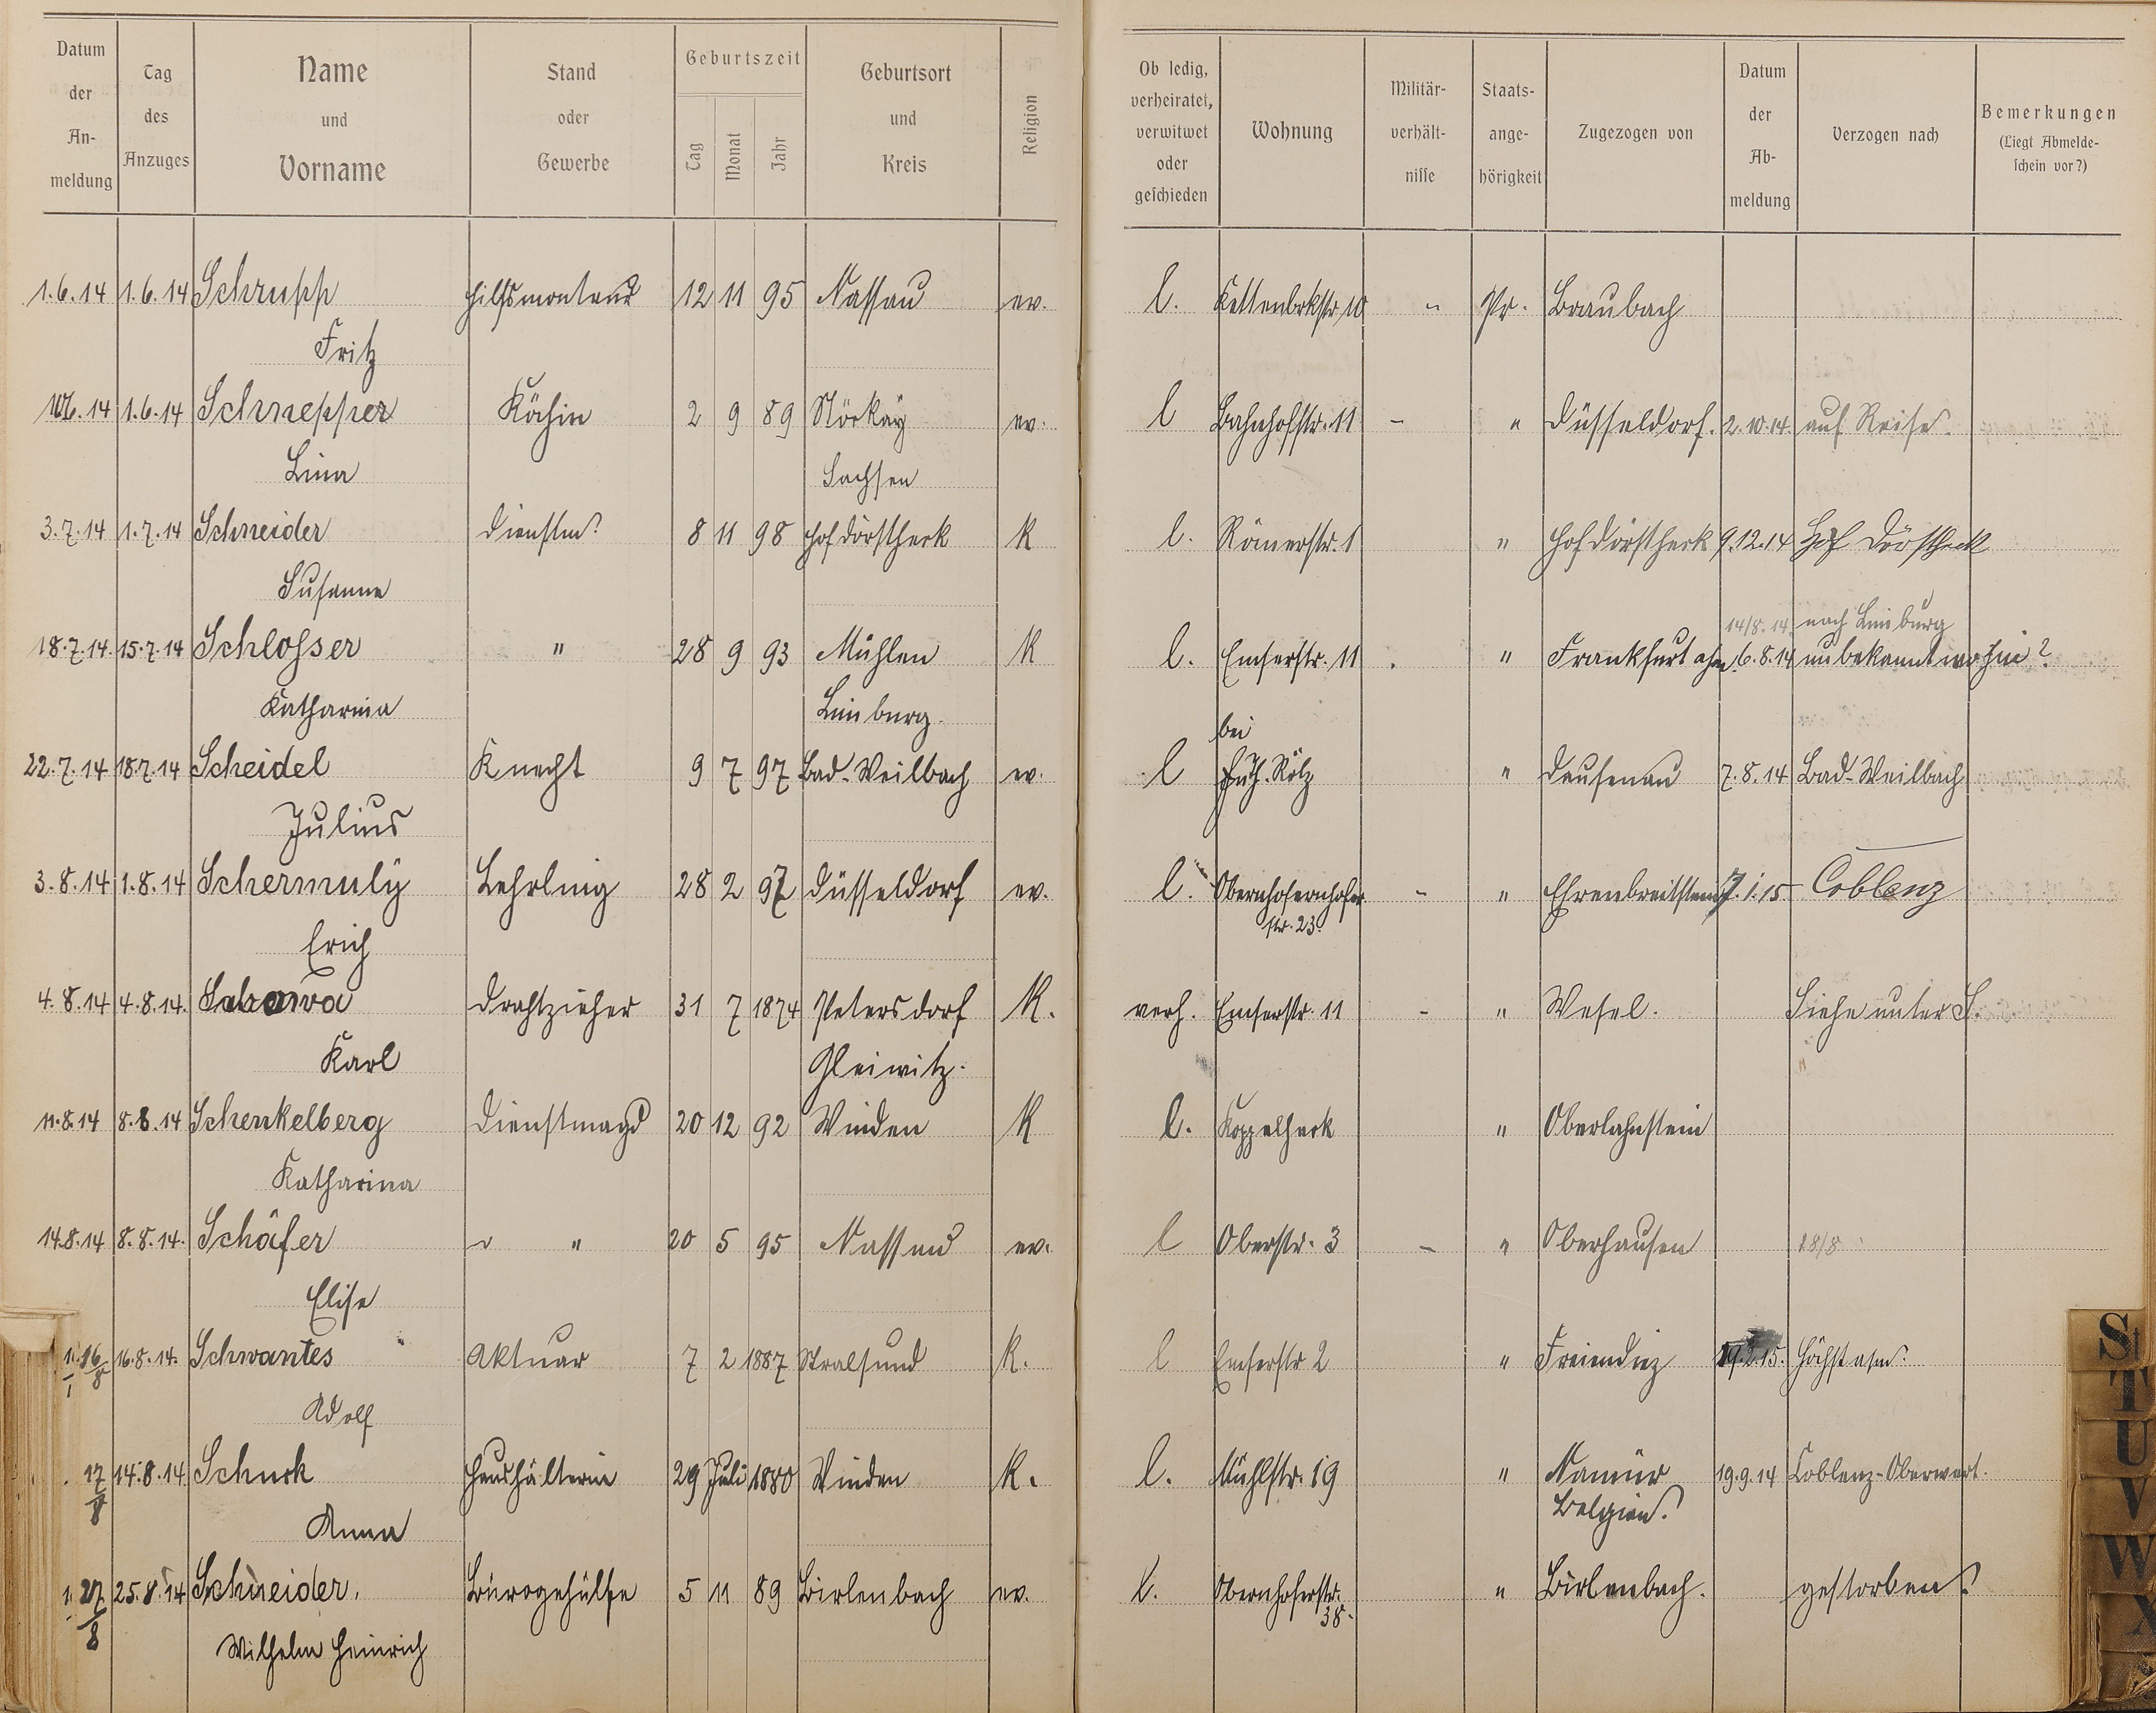 Datum der An- meldung | Tag des Anzuges | Name und Vorname | Stand oder Gewerbe | Geburtszeit Tag Monat Jahr | Geburtsort und Kreis | Religion | Ob ledig, verheiratet, verwitwet oder geschieden | Wohnung | Militär- verhält- nisse | Staats- ange- hörigkeit | Zugezogen von | Datum der Ab- meldung | Verzogen nach | Bemerkungen (Liegt Abmelde- schein vor?)
1.6.14 1.6.14 Schrupp 12 11 95 Nassau ev. l. Kettenbrkstr. 10 " Pr. Braubach
Fritz
.14 1.6.14 Schnepper Köchin 2 9 89 ev. l Bahnhofstr. 11 - " Düsseldorf. 2.10.14. auf Reise.
Lina Sachsen
3.7.14 1.7.14 Schneider Dienstm. 8 11 98 Hof Dörstheck K l. Römerstr. 1 " Hof Dörstheck 9.12.14 Hof Dörstheck
Susanne
14/8.14. nach Limburg
18.7.14. 15.7.14 Schlosser " 28 9 93 Mühlen K l. Emserstr. 11 . " Frankfurt a/m 6.8.14 unbekannt wohin?
Katharina Limburg.
bei
22.7.14 18.7.14 Scheidel Knecht 9 7 97 Bad-Weilbach ev. l Rölz " Dausenau 7.8.14 Bad-Weilbach
Julius
3.8.14 1.8.14 Schermuly Lehrling 28 2 97 Düsseldorf ev. l. Obernhofernhofer - " Ehrenbreitstein 7.1.15 Coblenz
str. 23.
Erich
4.8.14 4.8.14. Drahtzieher 31 7 1874 Petersdorf K. verh. Emserstr. 11 - " Wesel. Siehe unter S.
Karl Gleiwitz.
11.8.14 8.8.14 Schenkelberg Dienstmagd 20 12 92 Winden K l. Koppelheck " Oberlahnstein
Katharina
14.8.14 8.8.14. Schäfer " 20 5 95 Nassau ev. l Oberstr. 3 - " Oberhausen 28/8
Elise
16/8 16.8.14. Schwantes Aktuar 7 2 1887 Stralsund K. l Emserstr 2 " Freiendiez .2.15. Höchst a/m.
Adolf
17/8 14.8.14. Schuck Haushälterin 29 Juli 1880 Winden K. l. Mühlstr. 19 " Namür 19.9.14 Coblenz-Oberwert.
Belgien.
Anna
27/8 25.8.14 Schneider. Bürogehülfe 5 11 89 Birlenbach ev. l. Obernhoferstr. " Birlenbach. gestorben.
38.
Wilhelm Heinrich
St
T
U
V
W
X